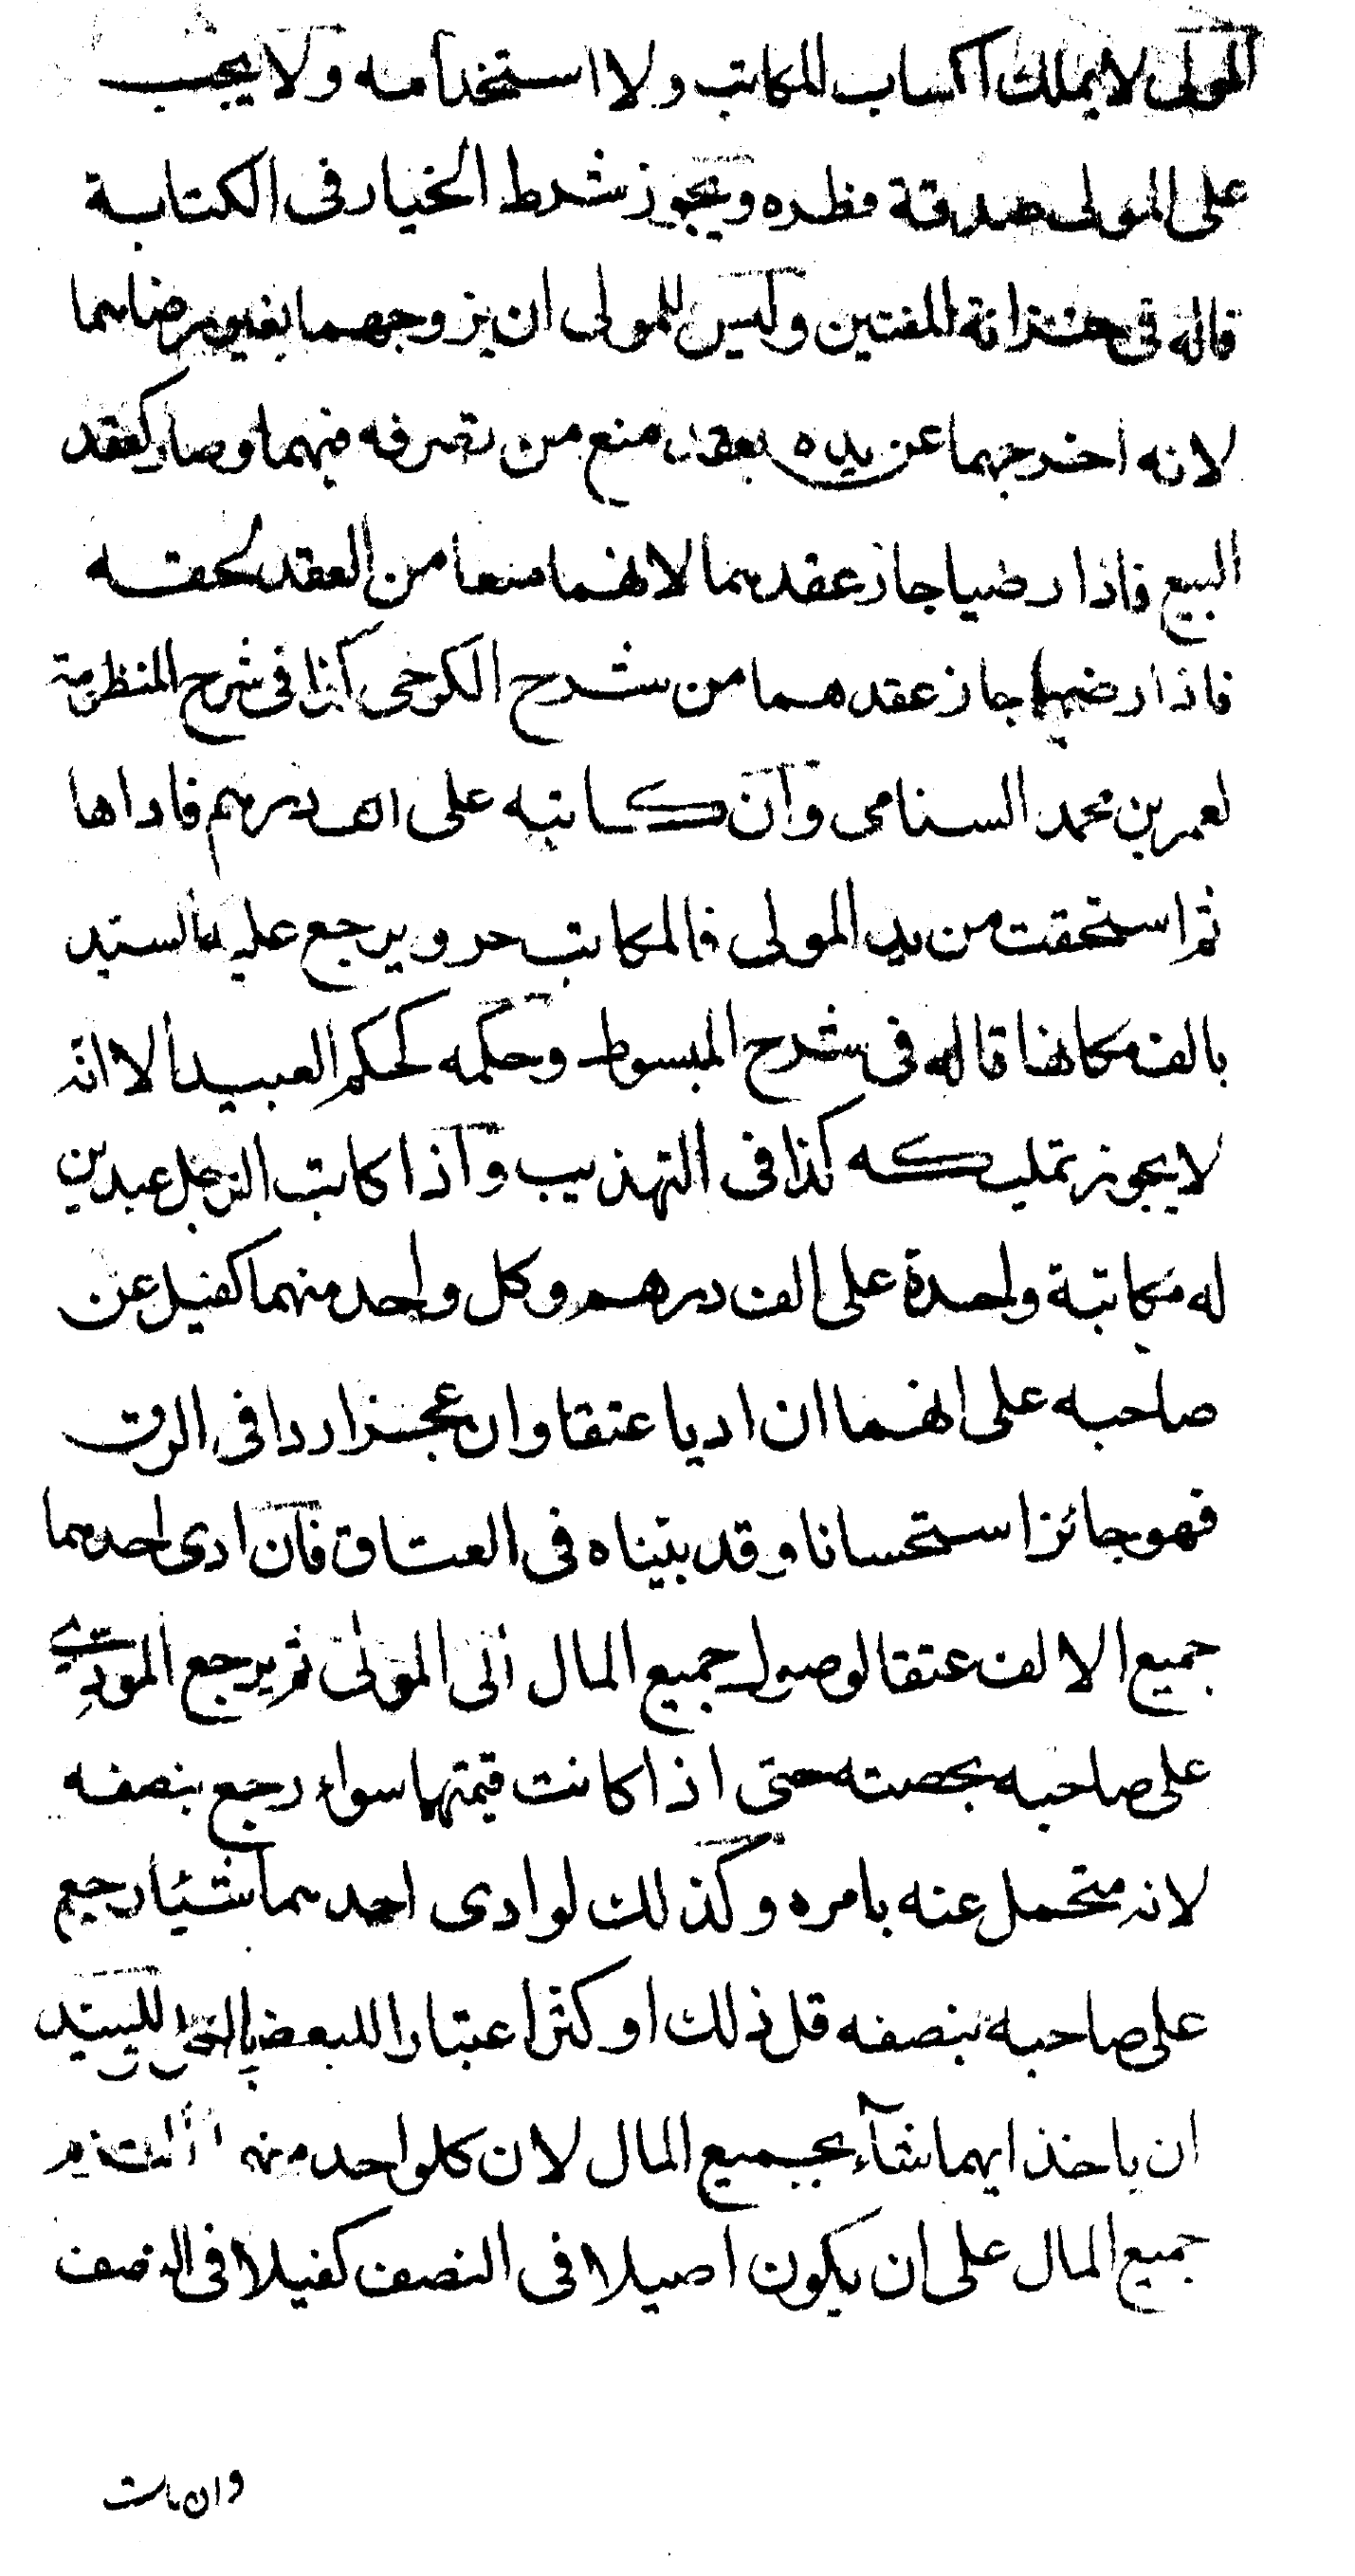 المولى لا يملك اكساب المكاتب ولا استخدامه ولا يجب
على المولى صدقة فطره ويجوز شرط الخيار فى الكتابة
قاله فى خزانة المفتين وليس للمولى ان يزوجهما بغير رضاهما
لانه اخرجهما عن يده بعقد منع من تصرفه فيهما وصار كعقد
البيع فاذا رضيا جاز عقدهما لانهما منعا من العقد لحقه
فاذا رضيا جاز عقدهما من شرح الكرخى كذا فى شرح المنظومة
لعمر بن محمد السنامى وان كاتبه على الف درهم فاداها
ثم استحقت من يد المولى فالمكاتب حر ويرجع عليه السيد
بالف مكانها قاله فى شرح المبسوط وحكمه كحكم العبيد الا انه
لا يجوز تمليكه كذا فى التهذيب واذا كاتب الرجل عبدين
له مكاتبة واحدة على الف درهم وكل واحد منهما كفيل عن
صاحبه على انهما ان اديا عتقا وان عجزا ردا فى الرق
فهو جائز استحسانا وقد بيناه فى العتاق فان ادى احدهما
جميع الالف عتقا لوصول جميع المال الى المولى ثم يرجع المودي
على صاحبه بحصته حتى اذا كانت قيمتهما سواء رجع بنصفه
لانه متحمل عنه بامره وكذلك لو ادى احدهما شيئا رجع
على صاحبه بنصفه قل ذلك او كثر اعتبارا للبعض بالكل للسيد
ان ياخذ ايهما شآء بجميع المال لان كل واحد منهما التزم
جميع المال على ان يكون اصيلا فى النصف كفيلا فى النصف
وان مات